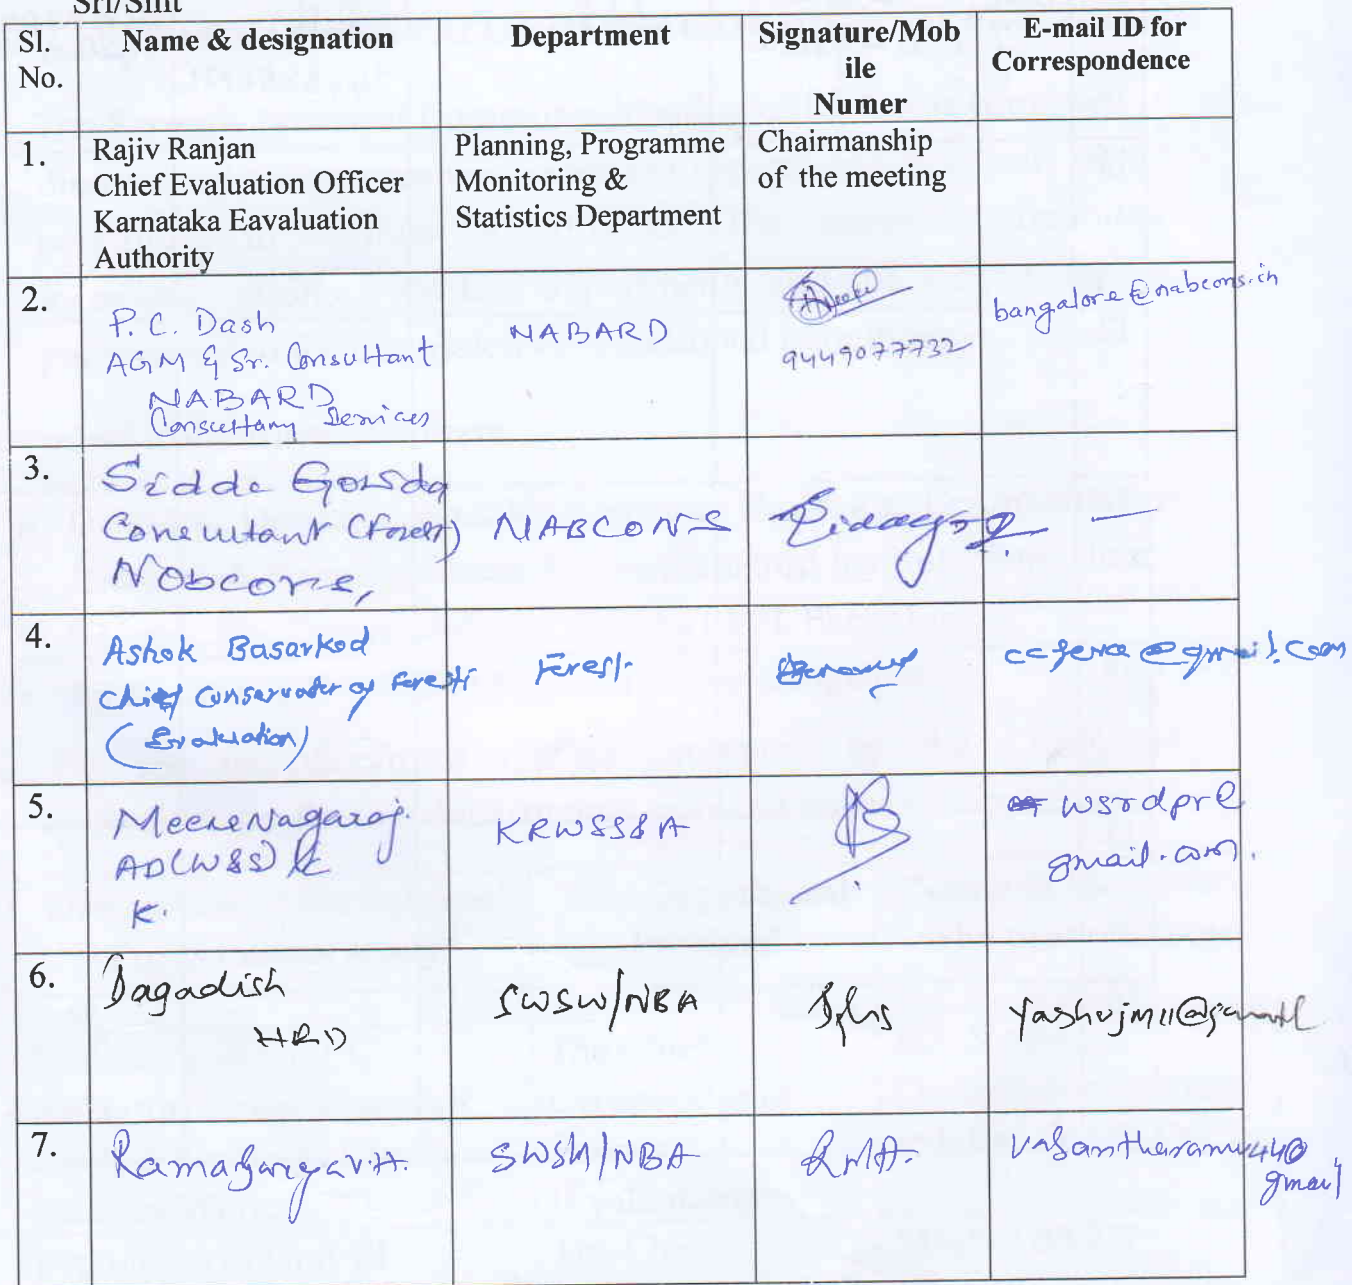 Sri/Smt
Sl. No.
Name & designation
Department
Signature/Mob
ile
Numer
E-mail ID for
Correspondence
1.
Rajiv Ranjan
Chief Evaluation Officer
Karnataka Eavaluation
Authority
Planning, Programme
Monitoring &
Statistics Department
Chairmanship
of the meeting
2.
P. C. Dash
AGM & Sr. Consultant
NABARD
Consultancy Services
NABARD
9449077732
bangalore@nabcons.in
3.
Sidda Gowda
Consultant (Forest)
Nabcons,
NABCONS
—
4.
Ashok Basarkod
Chief Conservator of Forests
(Evaluation)
Forest
@gmail.com
5.
Meera Nagaraj.
AD(W&S)
K.
KRWSSA
gmail.com.
6.
Jagadish
HRD
SWSM/NBA
yashujm11@gmail
7.
SWSM/NBA
vasantharamu440
gmail